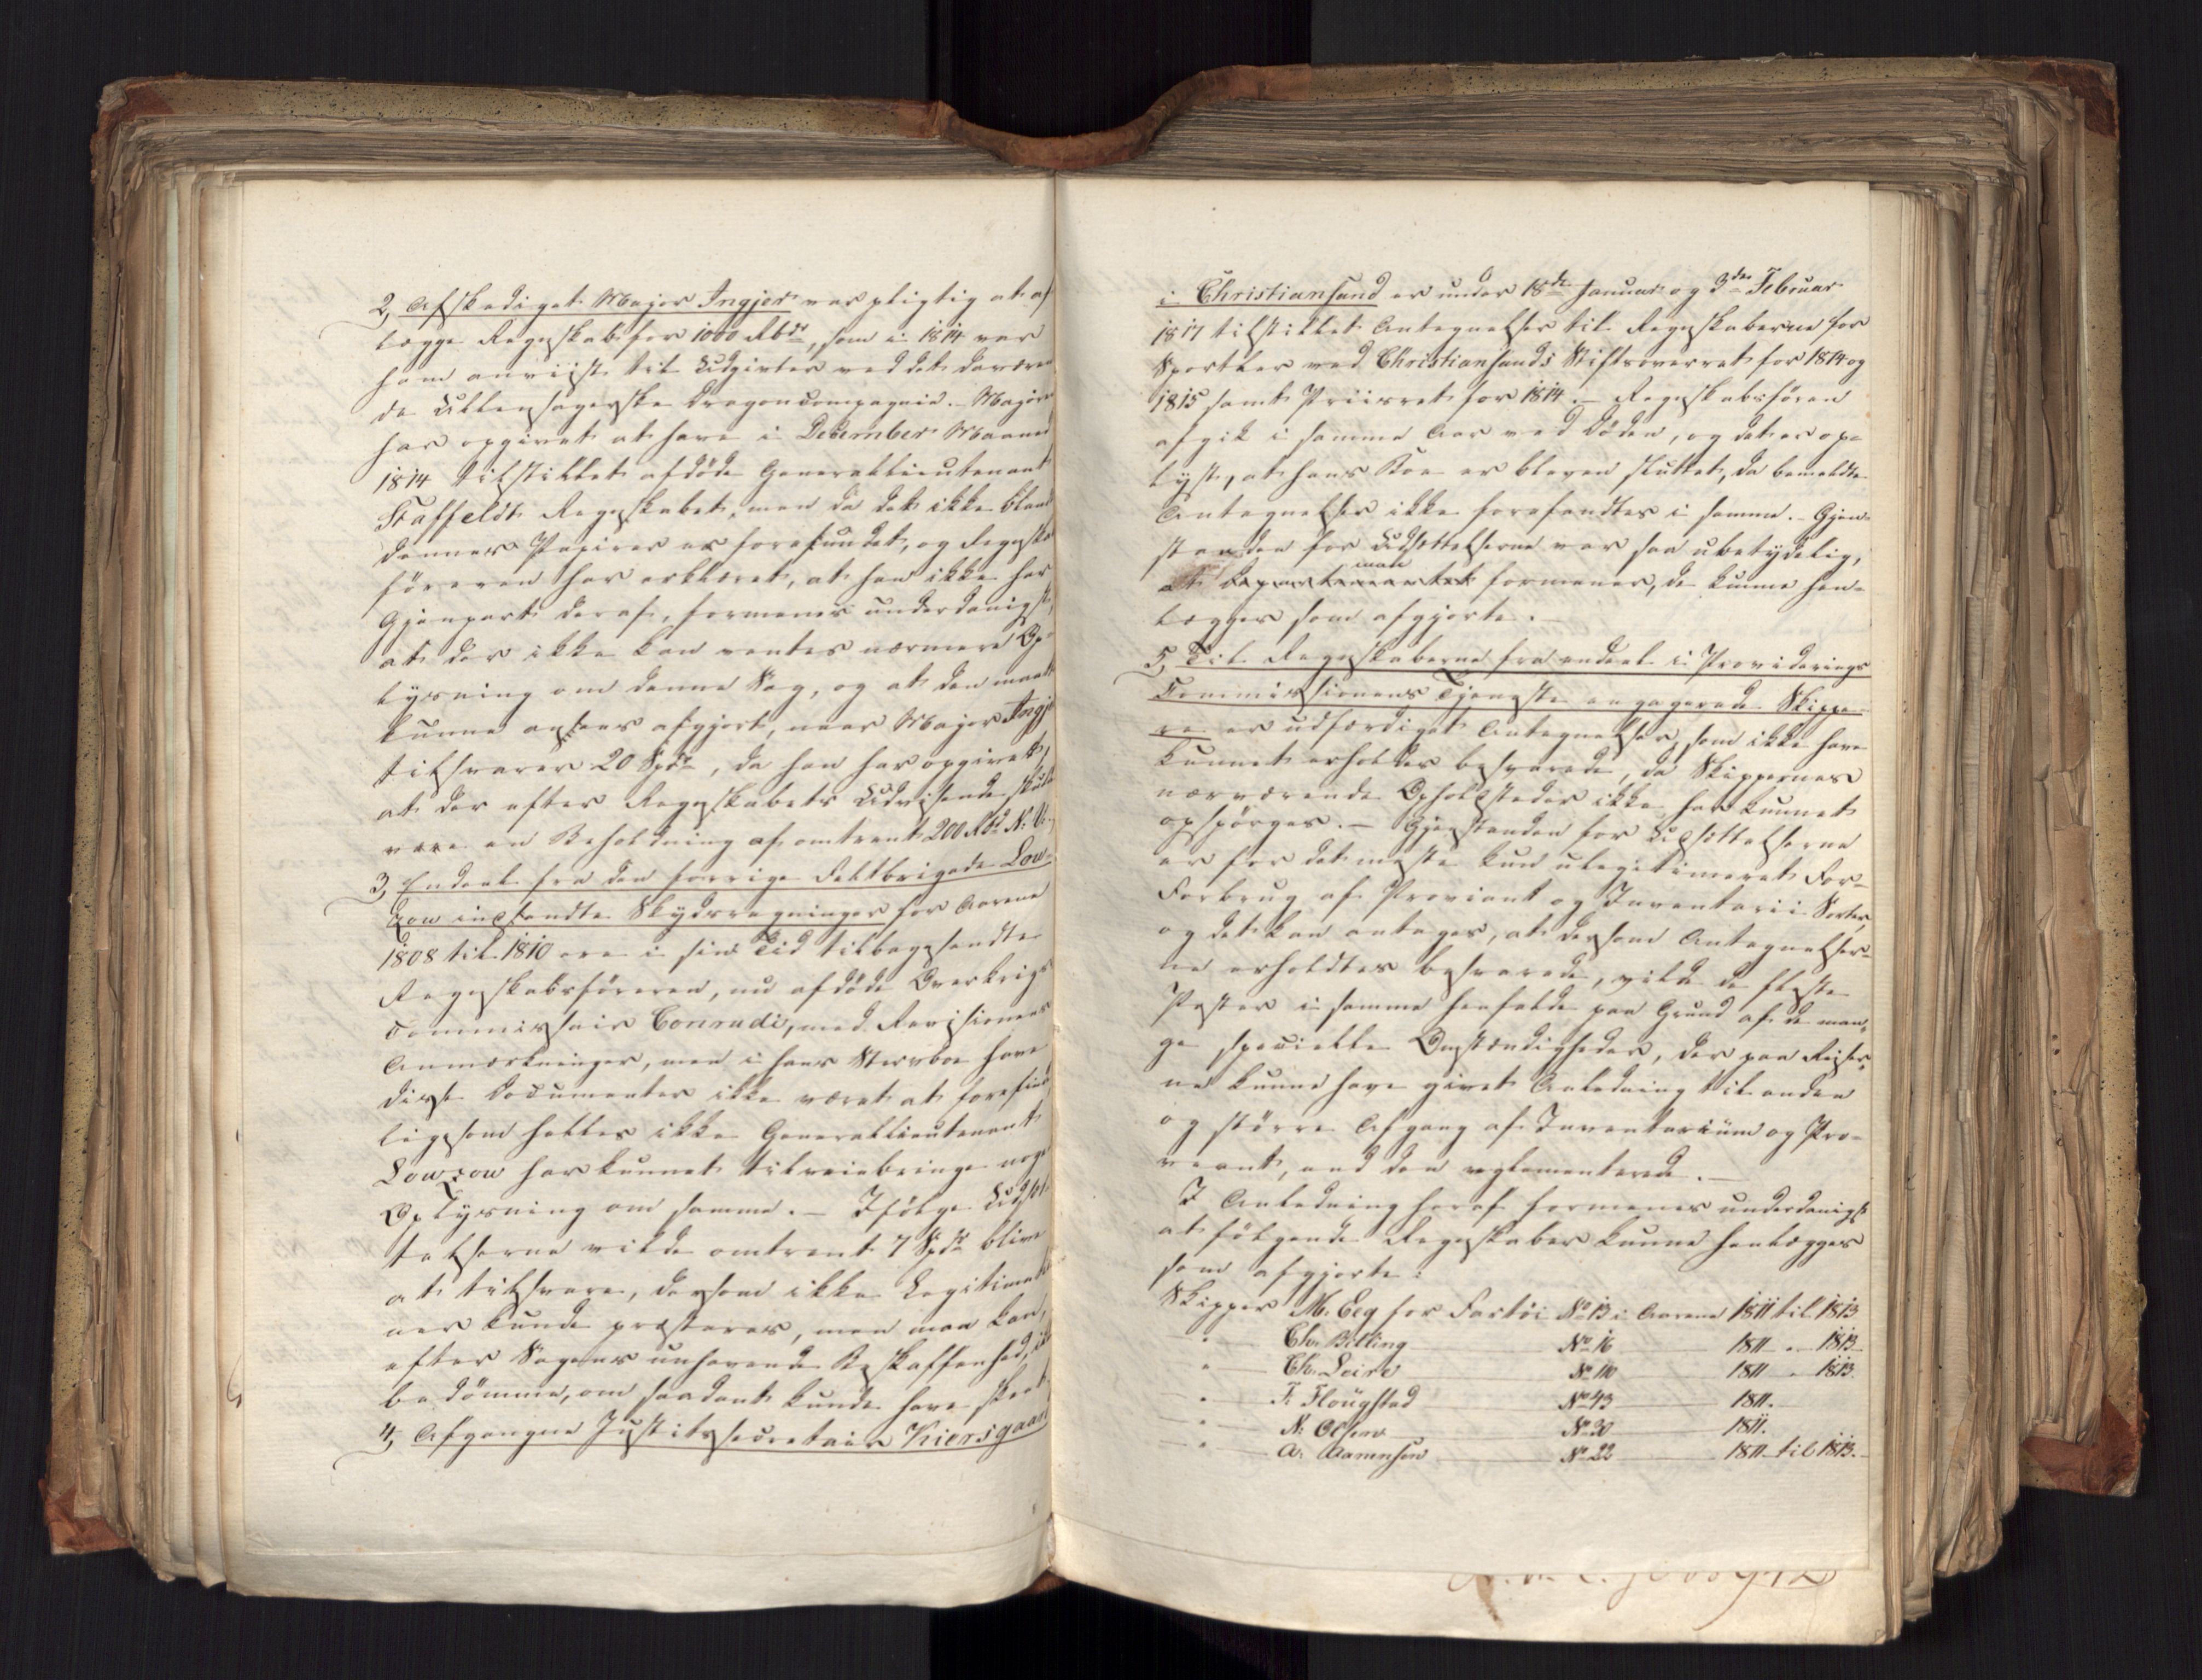 2, Afskediget Major Ingjer var pligtig at af
lægge Regnskab for 1000 Rbdr, som i 1814 var
ham anviist til Udgivter ved det daværen
de Ullensagerske Dragoncompagnie. Majoren
har opgivet at have i December Maaned
1814 tilstillet afdöde Generallieutenant
Staffeldt Regnskabet, men da det ikke blandt
dennes Papirer er forefundet, og Regnska
föreren har erklæret, at han ikke har
Gjenpart deraf, formenes underdanigst,
at der ikke kan ventes nærmere Op-
lysning om denne Sag, og at den maatte
kunne ansees afgjort, naar Major Ingje
tilsvarer 20 Spdr, da han har opgivet,
at der efter Regnskabets Udvisende skulde
være en Beholdning af omtrent 200 Rbd N. V.
3, Endeel fra den forrige Feltbrigade Low-
zow indsendte Skydsregninger for Aarene
1808 til 1810 ere i sin Tid tilbagesendte
Regnskabsföreren, nu afdöde Overkrigs
Commissair Conradi, med Revisionens
Anmærkninger, men i hans Stervboe have
disse Documenter ikke været at forefinde
ligesom heller ikke Generallieutenant
Lowzow har kunnet tilveiebringe noge
Oplysning om samme. – Ifölge Udsæt
telserne vilde omtrent 7 Spdr blive
at tilsvare, dersom ikke Legitimatio
ner kunde præsteres, men man kan,
efter Sagens unhavende Beskaffenhed, ikke
bedömme, om saadant kunde have skeet
4, Afgangne Justitssecretair Kiersgaard
i Christiansand er under 18de Januar og 3die Februar
1817 tilstillet Antegnelser til Regnskaberne for
Sportler ved Christiansands Stiftsoverret for 1814 og
1815 samt Priisret for 1814. – Regnskabsföreren
afgik i samme Aar ved Döden, og det er op-
lyst, at hans Boe er bleven sluttet, da bemeldte
Antegnelser ikke forefandtes i samme. – Gjen-
standen for Udsættelserne var saa ubetydelig,
man
at Departementet formener, de kunne hen-
lægges som afgjorte. –
5, Til Regnskaberne fra endeel i Providerings
Commissionens Tjeneste engagerede Skippe-
re er udfærdiget Antegnelser, som ikke have
kunnet erholdes besvarede, da Skippernes
nærværende Opholdssteder ikke har kunnet
opspörges. – Gjenstanden for Udsættelserne
er for det meste kun ulegitimeret For-
Forbrug af Proviant og Inventarii Sorter,
og det kan antages, at dersom Antegnelser-
ne erholdtes besvarede, vilde de fleste
Poster i samme henfalde paa Grund af de man-
ge specielle Omstændigheder, der paa Reiser-
ne kunne have givet Anledning til anden
og större Afgang af Inventarium og Pro-
viant, end den reglementerede. –
I Anledning heraf formenes underdanigst
at fölgende Regnskaber kunne henlægges
som afgjorte:
Skipper M. Eeg for Fartöi No 13 i Aarene 1811 til 1813
" Chr. Billing No 16 1811 " 1813
" Ch. Leire No 110 1811 " 1813.
" T. Flougstad No 43 1811.
" N. Olsen No 30 1811.
" A. Aamensen No 22 1811 til 1813.